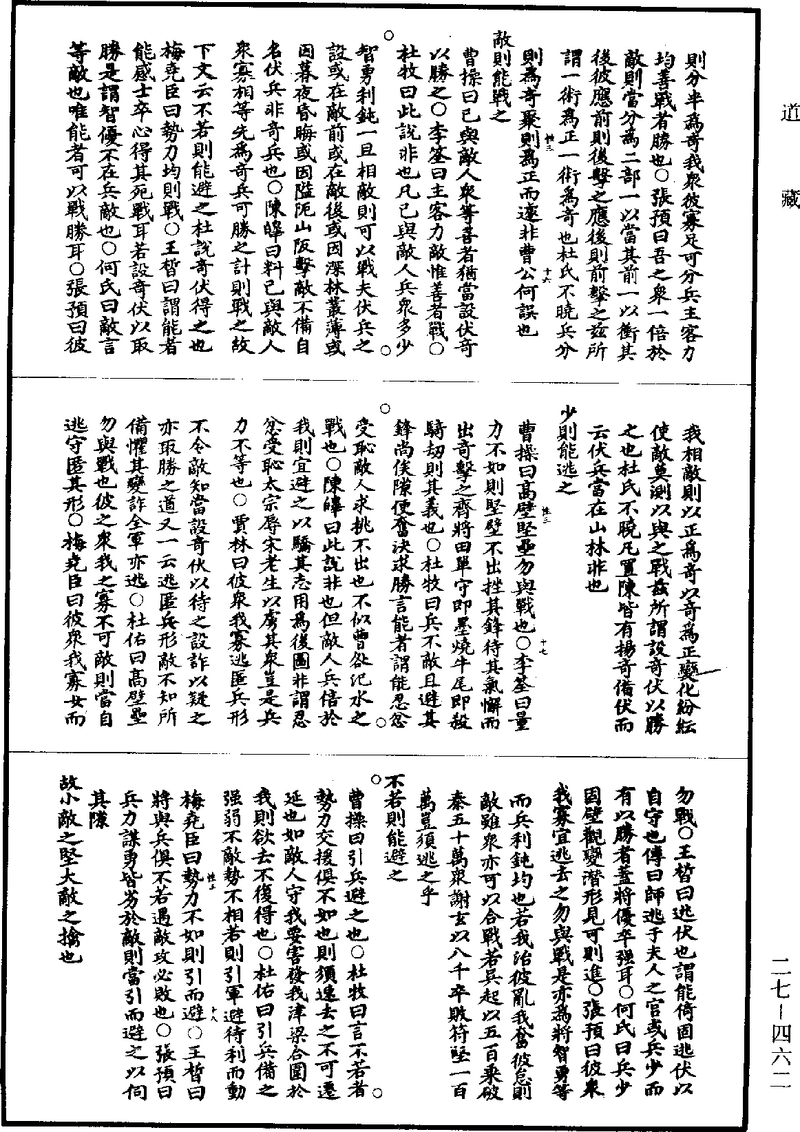 道藏
則分半為奇我衆彼寡足可分兵主客力
均善戰者勝也○張預曰吾之衆一倍於
敵則當分為二部一以當其前一以衝其
後彼應前則後擊之應後則前擊之茲所
謂一術為正一術為奇也杜氏不曉兵分
則為奇聚則為正而遽非曹公何誤也
敵則能戰之
曹操曰己與敵人衆等善者猶當設伏奇
以勝之○李筌曰主客力敵惟善者戰○
杜牧曰此說非也凡己與敵人兵衆多少
智勇利鈍一旦相敵則可以戰夫伏兵之
設或在敵前或在敵後或因深林叢薄或
因暮夜昏晦或因隘阨山阪擊敵不備自
名伏兵非奇兵也○陳皥曰料己與敵人
衆寡相等先為奇兵可勝之計則戰之故
下文云不若則能避之杜說奇伏得之也
梅堯臣曰勢力均則戰○王晳曰謂能者
能感士卒心得其死戰耳若設奇伏以取
勝是謂智優不在兵敵也○何氏曰敵言
等敵也唯能者可以戰勝耳○張預曰彼
我相敵則以正為奇以奇為正變化紛紜
使敵莫測以與之戰茲所謂設奇伏以勝
之也杜氏不曉凡置陳皆有揚奇備伏而
云伏兵當在山林非也
少則能逃之
曹操曰高壁堅壘勿與戰也○李筌曰量
力不如則堅壁不出挫其鋒待其氣懈而
出奇擊之齊將田單守即墨燒牛尾即殺
騎劫則其義也○杜牧曰兵不敵且避其
鋒尚俟隙便奮決求勝言能者謂能忍忿
受恥敵人求挑不出也不似曹咎汜水之
戰也○陳皥曰此說非也但敵人兵倍於
我則宜避之以驕其志用為後圖非謂忍
忿受恥太宗辱宋老生以虜其衆豈是兵
力不等也○賈林曰彼衆我寡逃匿兵形
不令敵知當設奇伏以待之設詐以疑之
亦取勝之道又一云逃匿兵形敵不知所
備懼其變詐全軍亦逃○杜佑曰高壁壘
勿與戰也彼之衆我之寡不可敵則當自
逃守匿其形○梅堯臣曰彼衆我寡去而
勿戰○王晳曰逃伏也謂能倚固逃伏以
自守也傳曰師逃于夫人之宮或兵少而
有以勝者蓋將優卒强耳○何氏曰兵少
固壁觀變潛形見可則進○張預曰彼衆
我寡宜逃去之勿與戰是亦為將智勇等
而兵利鈍均也若我治彼亂我奮彼怠則
敵雖衆亦可以合戰若吳起以五百乘破
秦五十萬衆謝玄以八千卒敗苻堅一百
萬豈須逃之乎
不若則能避之
曹操曰引兵避之也○杜牧曰言不若者
勢力交援俱不如也則須速去之不可遷
延也如敵人守我要害發我津梁合圍於
我則欲去不復得也○杜佑曰引兵備之
强弱不敵勢不相若則引軍避待利而動
梅堯臣曰勢力不如則引而避○王晳曰
將與兵俱不若遇敵攻必敗也○張預曰
兵力謀勇皆劣於敵則當引而避之以伺
其隙
故小敵之堅大敵之擒也
二七-四六二